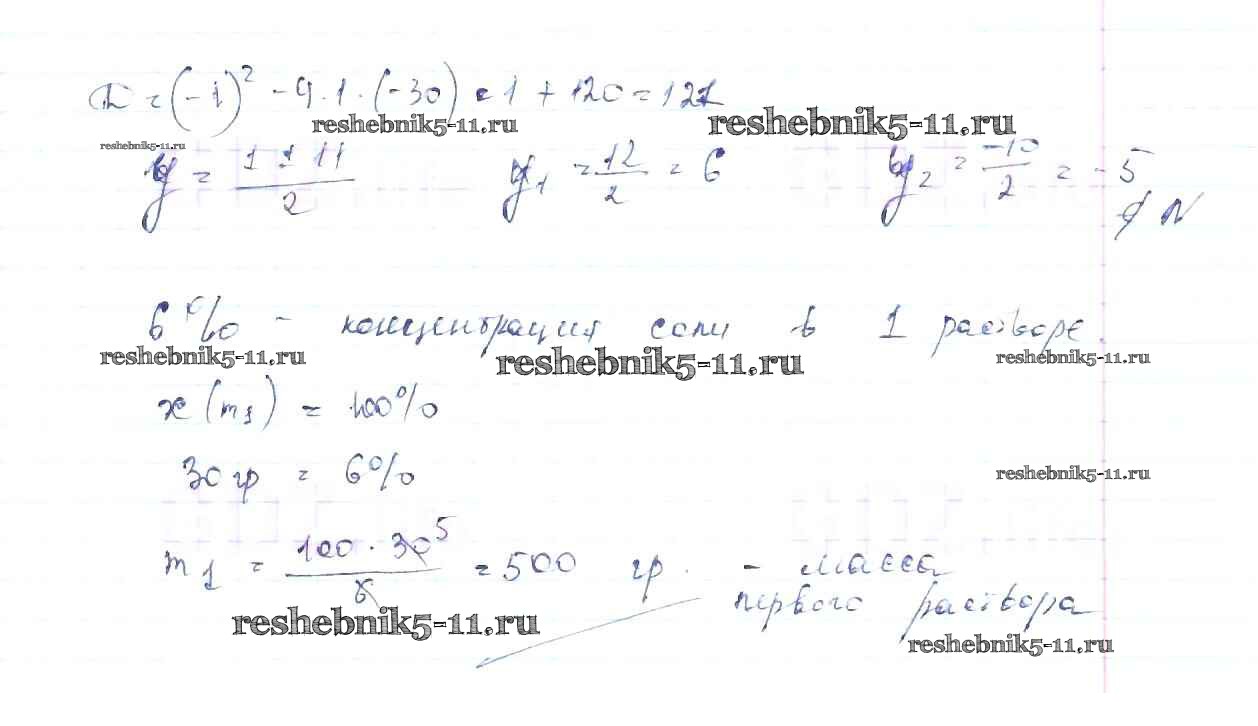 D = (-1)² - 4·1·(-30) = 1 + 120 = 121
reshebnik5-11.ru reshebnik5-11.ru
reshebnik5-11.ru
y = (1 ± 11)/2 y₁ = 12/2 = 6 y₂ = -10/2 = -5
∉ N
6% - концентрация соли в 1 растворе.
reshebnik5-11.ru reshebnik5-11.ru reshebnik5-11.ru
x (m₁) = 100%
30 гр = 6%
reshebnik5-11.ru
m₁ = (100·30⁵)/6 = 500 гр. - масса
первого раствора
reshebnik5-11.ru
reshebnik5-11.ru